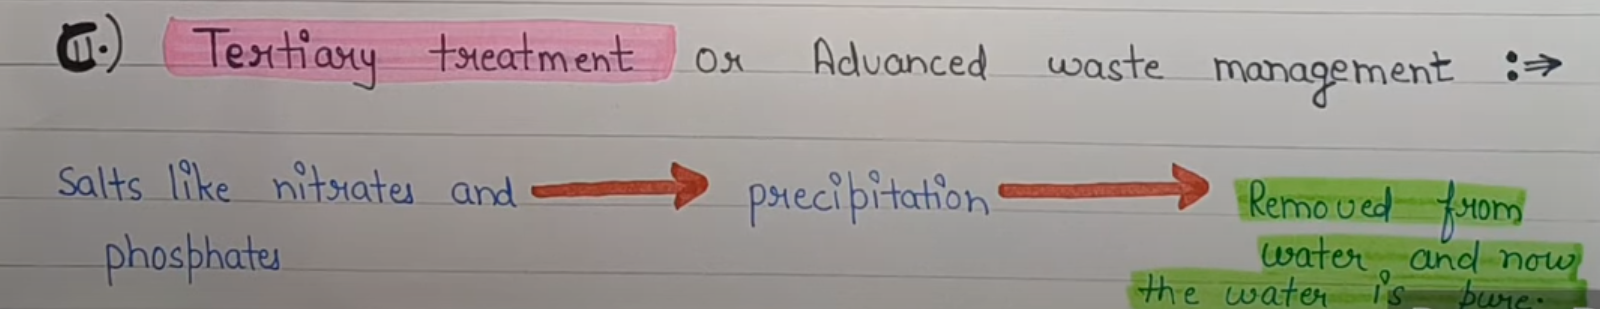 II.) Tertiary treatment or Advanced waste management :⇒
Salts like nitrates and → precipitation → Removed from
phosphates water and now
the water is pure.